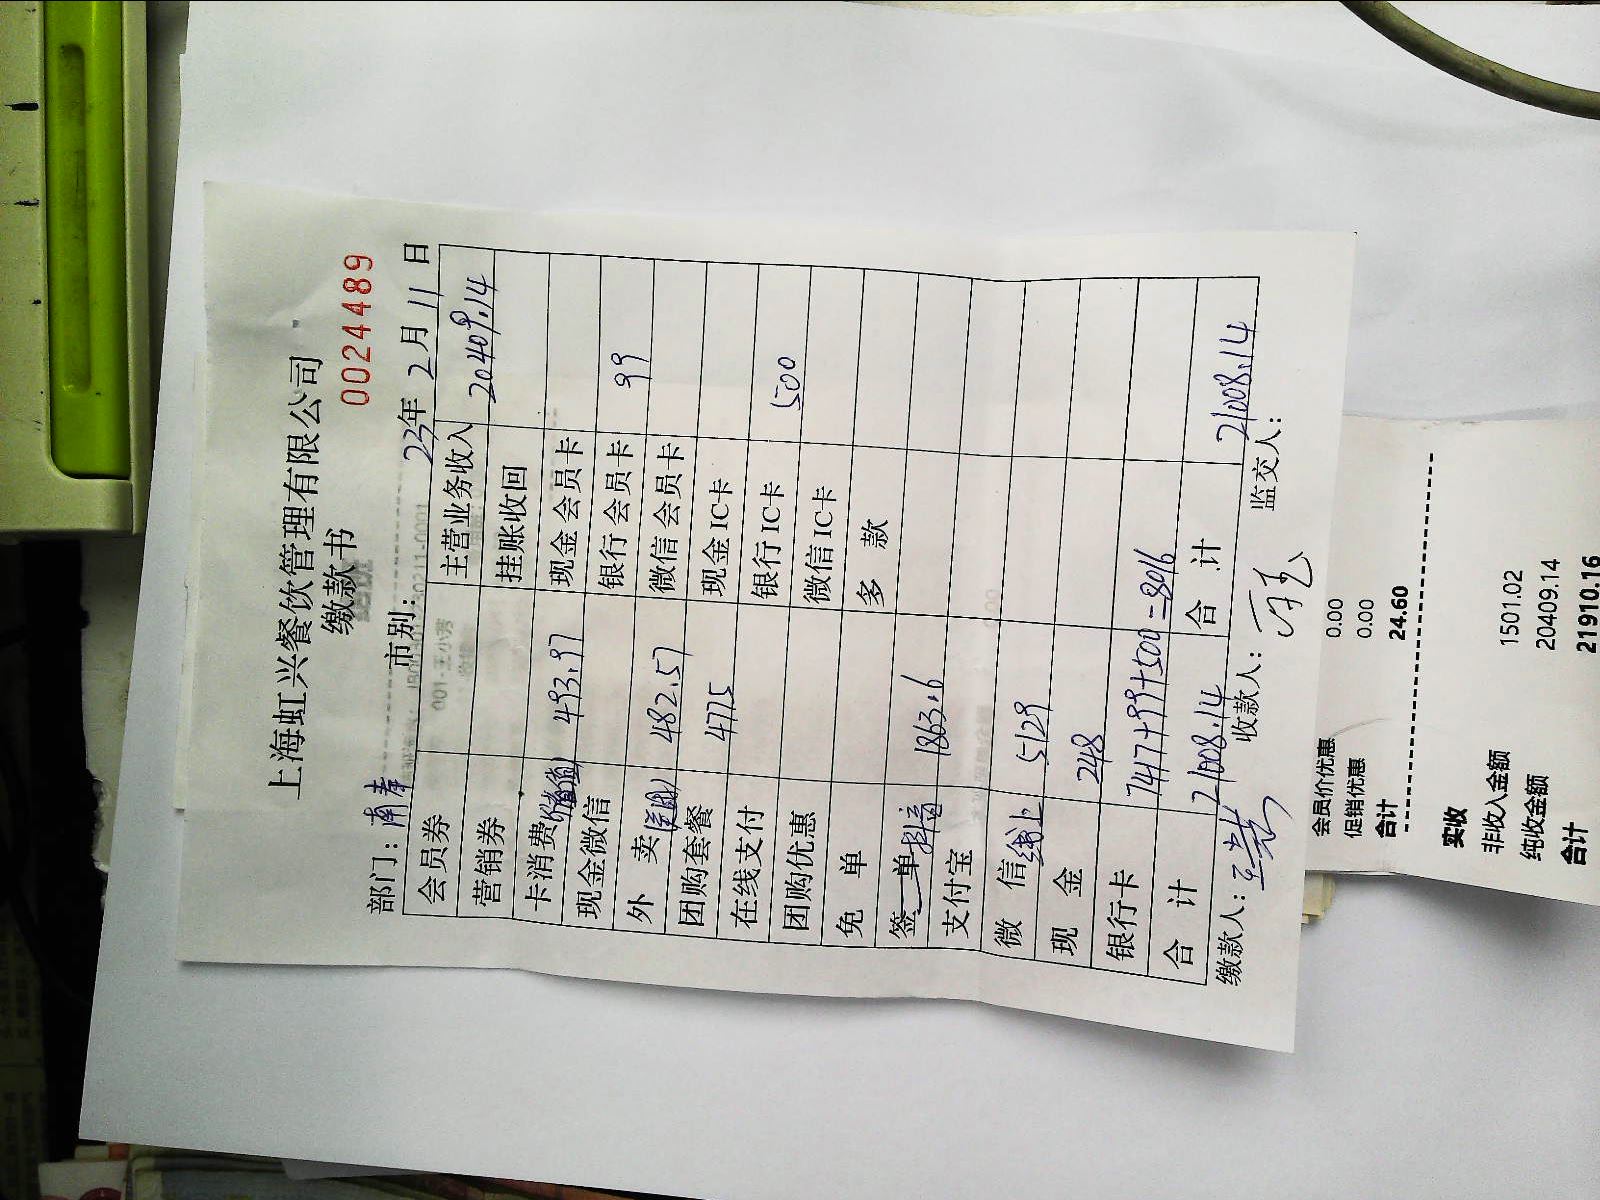 上海虹兴餐饮管理有限公司
缴款书
0024489
部门： 市别： 23年 2月 11日
会员券 主营业务收入 20409.14
营销券 挂账收回
卡消费 493.97 现金会员卡
现金微信 银行会员卡 99
外 卖 482.57 微信会员卡
团购套餐 4775 现金IC卡
在线支付 银行IC卡 500
团购优惠 微信IC卡
免 单 多 款
签 单 抖音 1863.6
支付宝
微 信 线上 5129
现 金 248
银行卡 7417+99+500=8016
合 计 21008.14 合 计 21008.14
缴款人： 收款人： 监交人：
会员价优惠 0.00
促销优惠 0.00
合计 24.60
实收
非收入金额 1501.02
纯收金额 20409.14
合计 21910.16